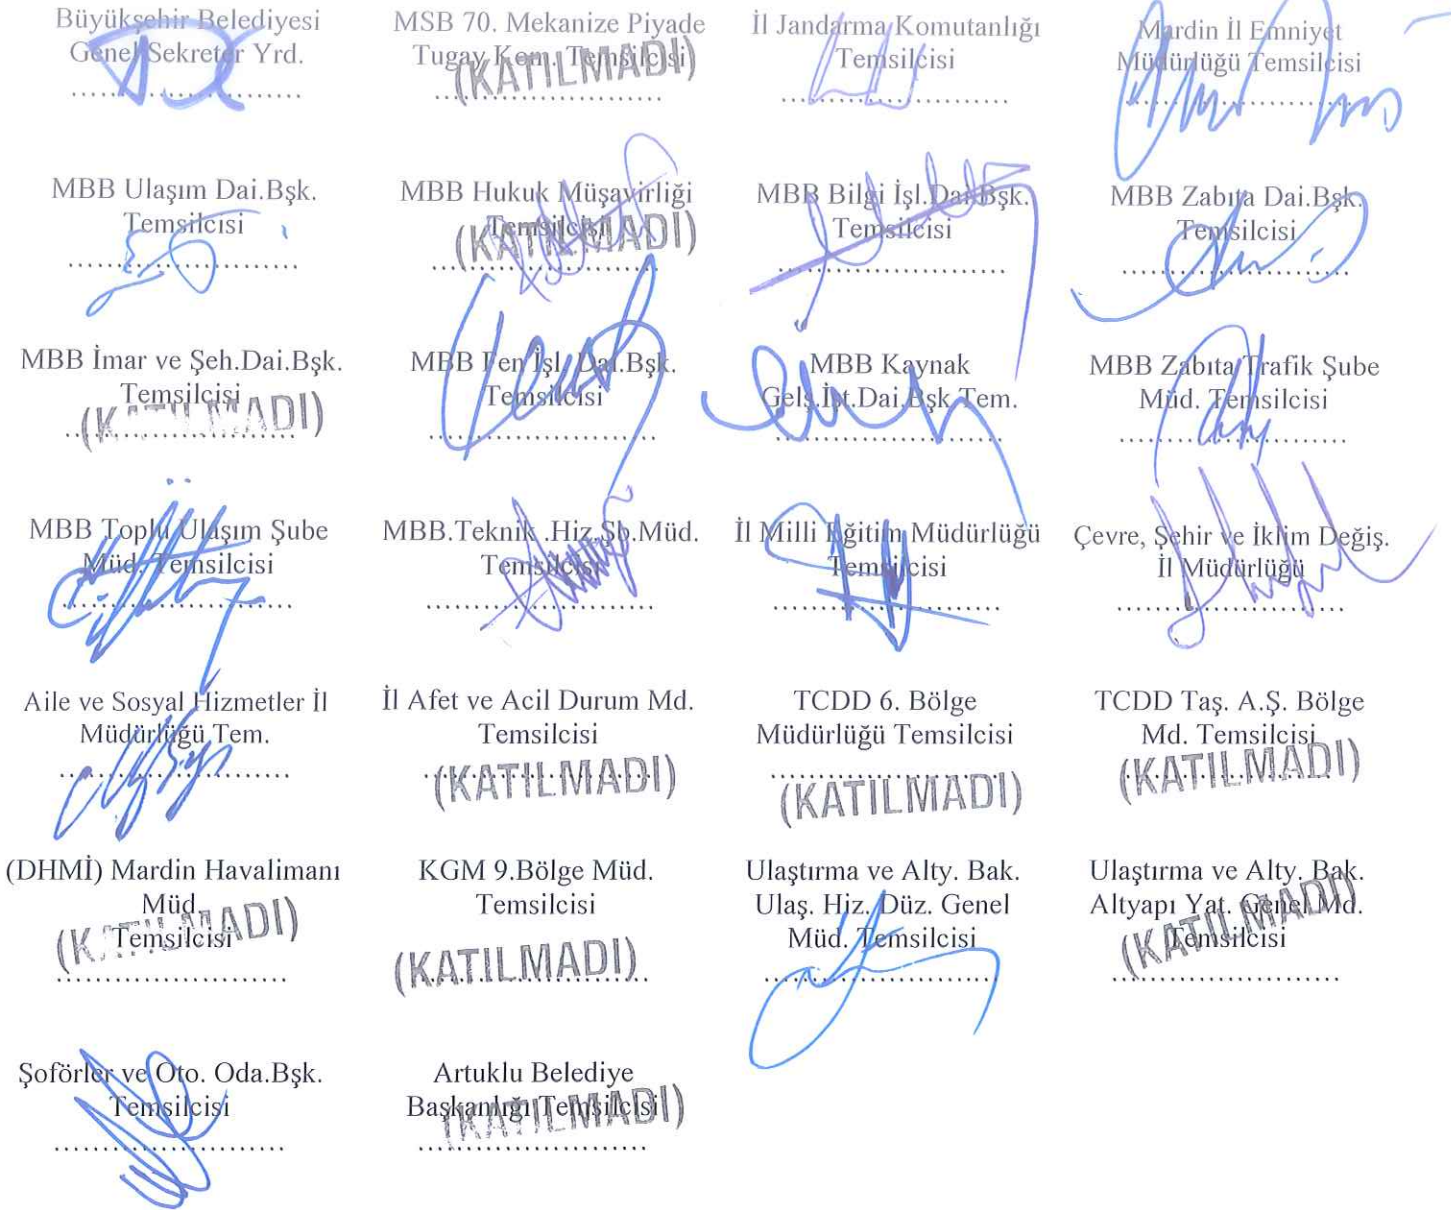 Büyükşehir Belediyesi
Genel Sekreter Yrd.
........................
MSB 70. Mekanize Piyade
Tugay Kom. Temsilcisi
(KATILMADI)
........................
İl Jandarma Komutanlığı
Temsilcisi
........................
Mardin İl Emniyet
Müdürlüğü Temsilcisi
........................
MBB Ulaşım Dai.Bşk.
Temsilcisi
........................
MBB Hukuk Müşavirliği
Temsilcisi
(KATILMADI)
........................
MBB Bilgi İşl.Dai.Bşk.
Temsilcisi
........................
MBB Zabıta Dai.Bşk.
Temsilcisi
........................
MBB İmar ve Şeh.Dai.Bşk.
Temsilcisi
(KATILMADI)
........................
MBB Fen İşl. Dai.Bşk.
Temsilcisi
........................
MBB Kaynak
Gelş.İşt.Dai.Bşk.Tem.
........................
MBB Zabıta Trafik Şube
Müd. Temsilcisi
........................
MBB Toplu Ulaşım Şube
Müd. Temsilcisi
........................
MBB.Teknik .Hiz.Şb.Müd.
Temsilcisi
........................
İl Milli Eğitim Müdürlüğü
Temsilcisi
........................
Çevre, Şehir ve İklim Değiş.
İl Müdürlüğü
........................
Aile ve Sosyal Hizmetler İl
Müdürlüğü Tem.
........................
İl Afet ve Acil Durum Md.
Temsilcisi
........................
(KATILMADI)
TCDD 6. Bölge
Müdürlüğü Temsilcisi
........................
(KATILMADI)
TCDD Taş. A.Ş. Bölge
Md. Temsilcisi
........................
(KATILMADI)
(DHMİ) Mardin Havalimanı
Müd.
Temsilcisi
(KATILMADI)
........................
KGM 9.Bölge Müd.
Temsilcisi
(KATILMADI)
........................
Ulaştırma ve Alty. Bak.
Ulaş. Hiz. Düz. Genel
Müd. Temsilcisi
........................
Ulaştırma ve Alty. Bak.
Altyapı Yat. Genel Md.
Temsilcisi
(KATILMADI)
........................
Şoförler ve Oto. Oda.Bşk.
Temsilcisi
........................
Artuklu Belediye
Başkanlığı Temsilcisi
(KATILMADI)
........................